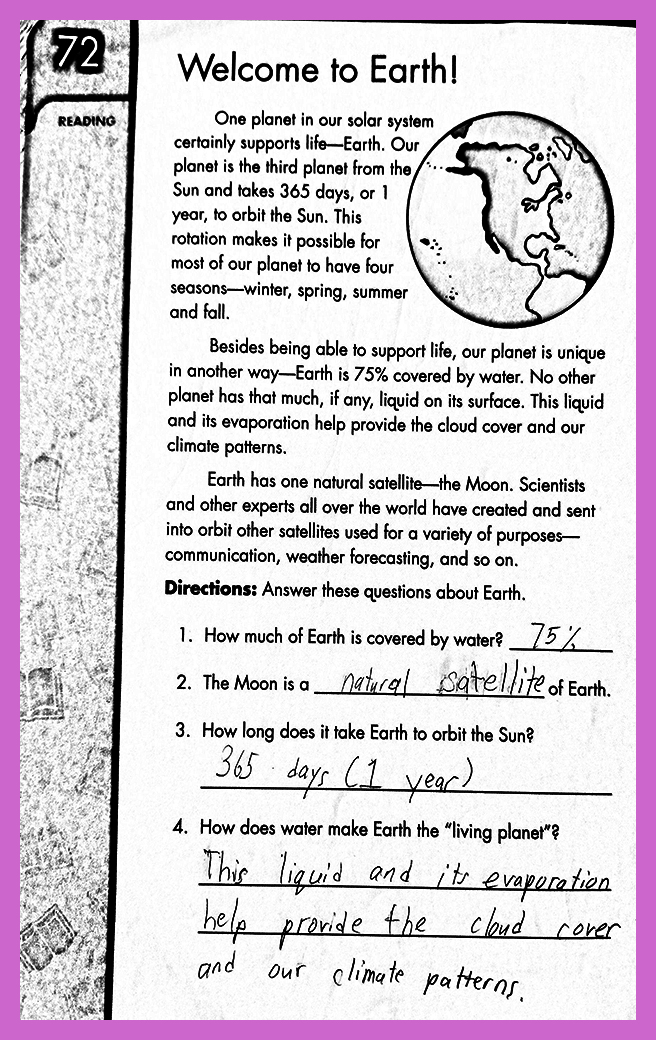 72
Welcome to Earth!
READING
One planet in our solar system
certainly supports life—Earth. Our
planet is the third planet from the
Sun and takes 365 days, or 1
year, to orbit the Sun. This
rotation makes it possible for
most of our planet to have four
seasons—winter, spring, summer
and fall.
Besides being able to support life, our planet is unique
in another way—Earth is 75% covered by water. No other
planet has that much, if any, liquid on its surface. This liquid
and its evaporation help provide the cloud cover and our
climate patterns.
Earth has one natural satellite—the Moon. Scientists
and other experts all over the world have created and sent
into orbit other satellites used for a variety of purposes—
communication, weather forecasting, and so on.
Directions: Answer these questions about Earth.
1. How much of Earth is covered by water? 75%
2. The Moon is a natural satellite of Earth.
3. How long does it take Earth to orbit the Sun?
365 days (1 year)
4. How does water make Earth the "living planet"?
This liquid and its evaporation
help provide the cloud cover
and our climate patterns.